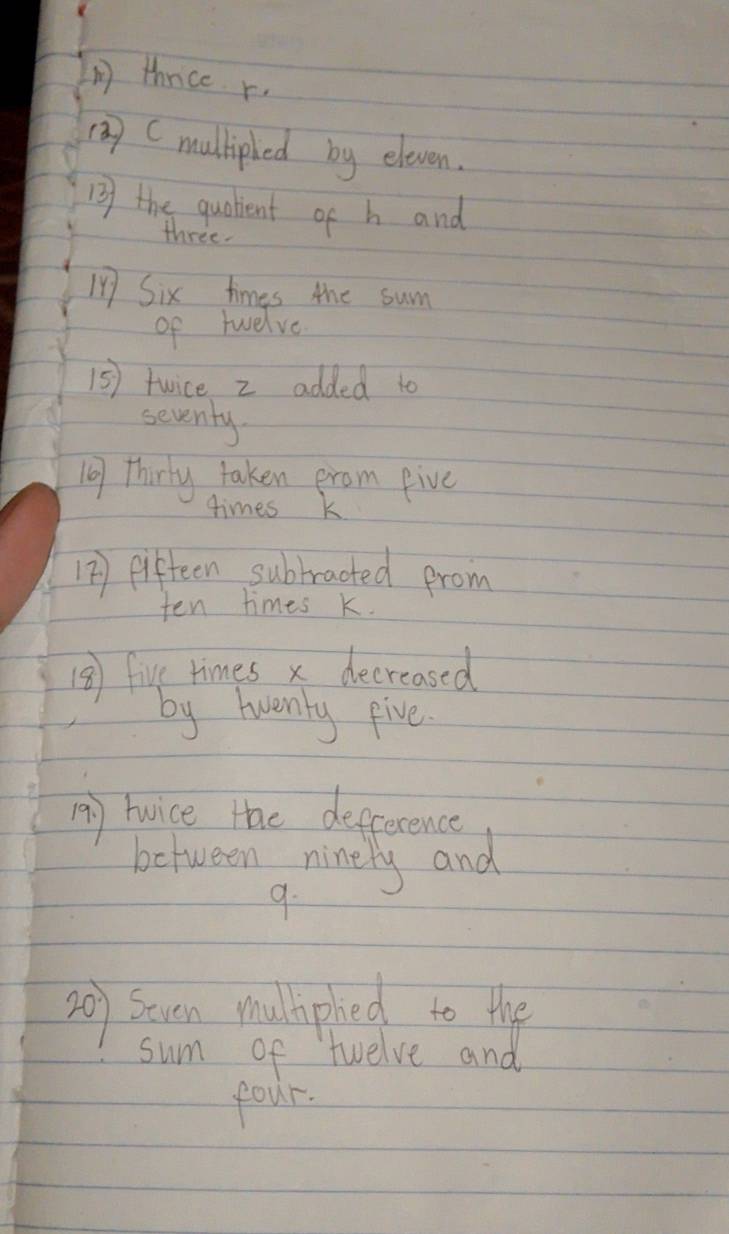 11) thrice r.
12) C multiplied by eleven.
13) the quotient of h and
three.
14) Six times the sum
of twelve.
15) twice z added to
seventy.
16) Thirty taken from five
times k
17) fifteen subtracted from
ten times k.
18) five times x decreased
by twenty five.
19.) twice the defference
between ninety and
q.
20) Seven multiplied to the
sum of twelve and
four.